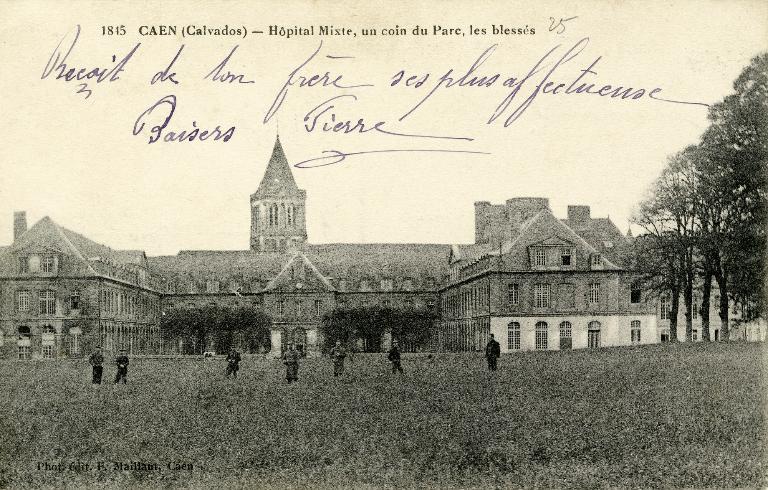 1815 CAEN (Calvados) — Hôpital Mixte, un coin du Parc, les blessés
25
Reçoit de ton frère ses plus affectueuse
Baisers Pierre
Phot. édit. F. Maillant, Caen